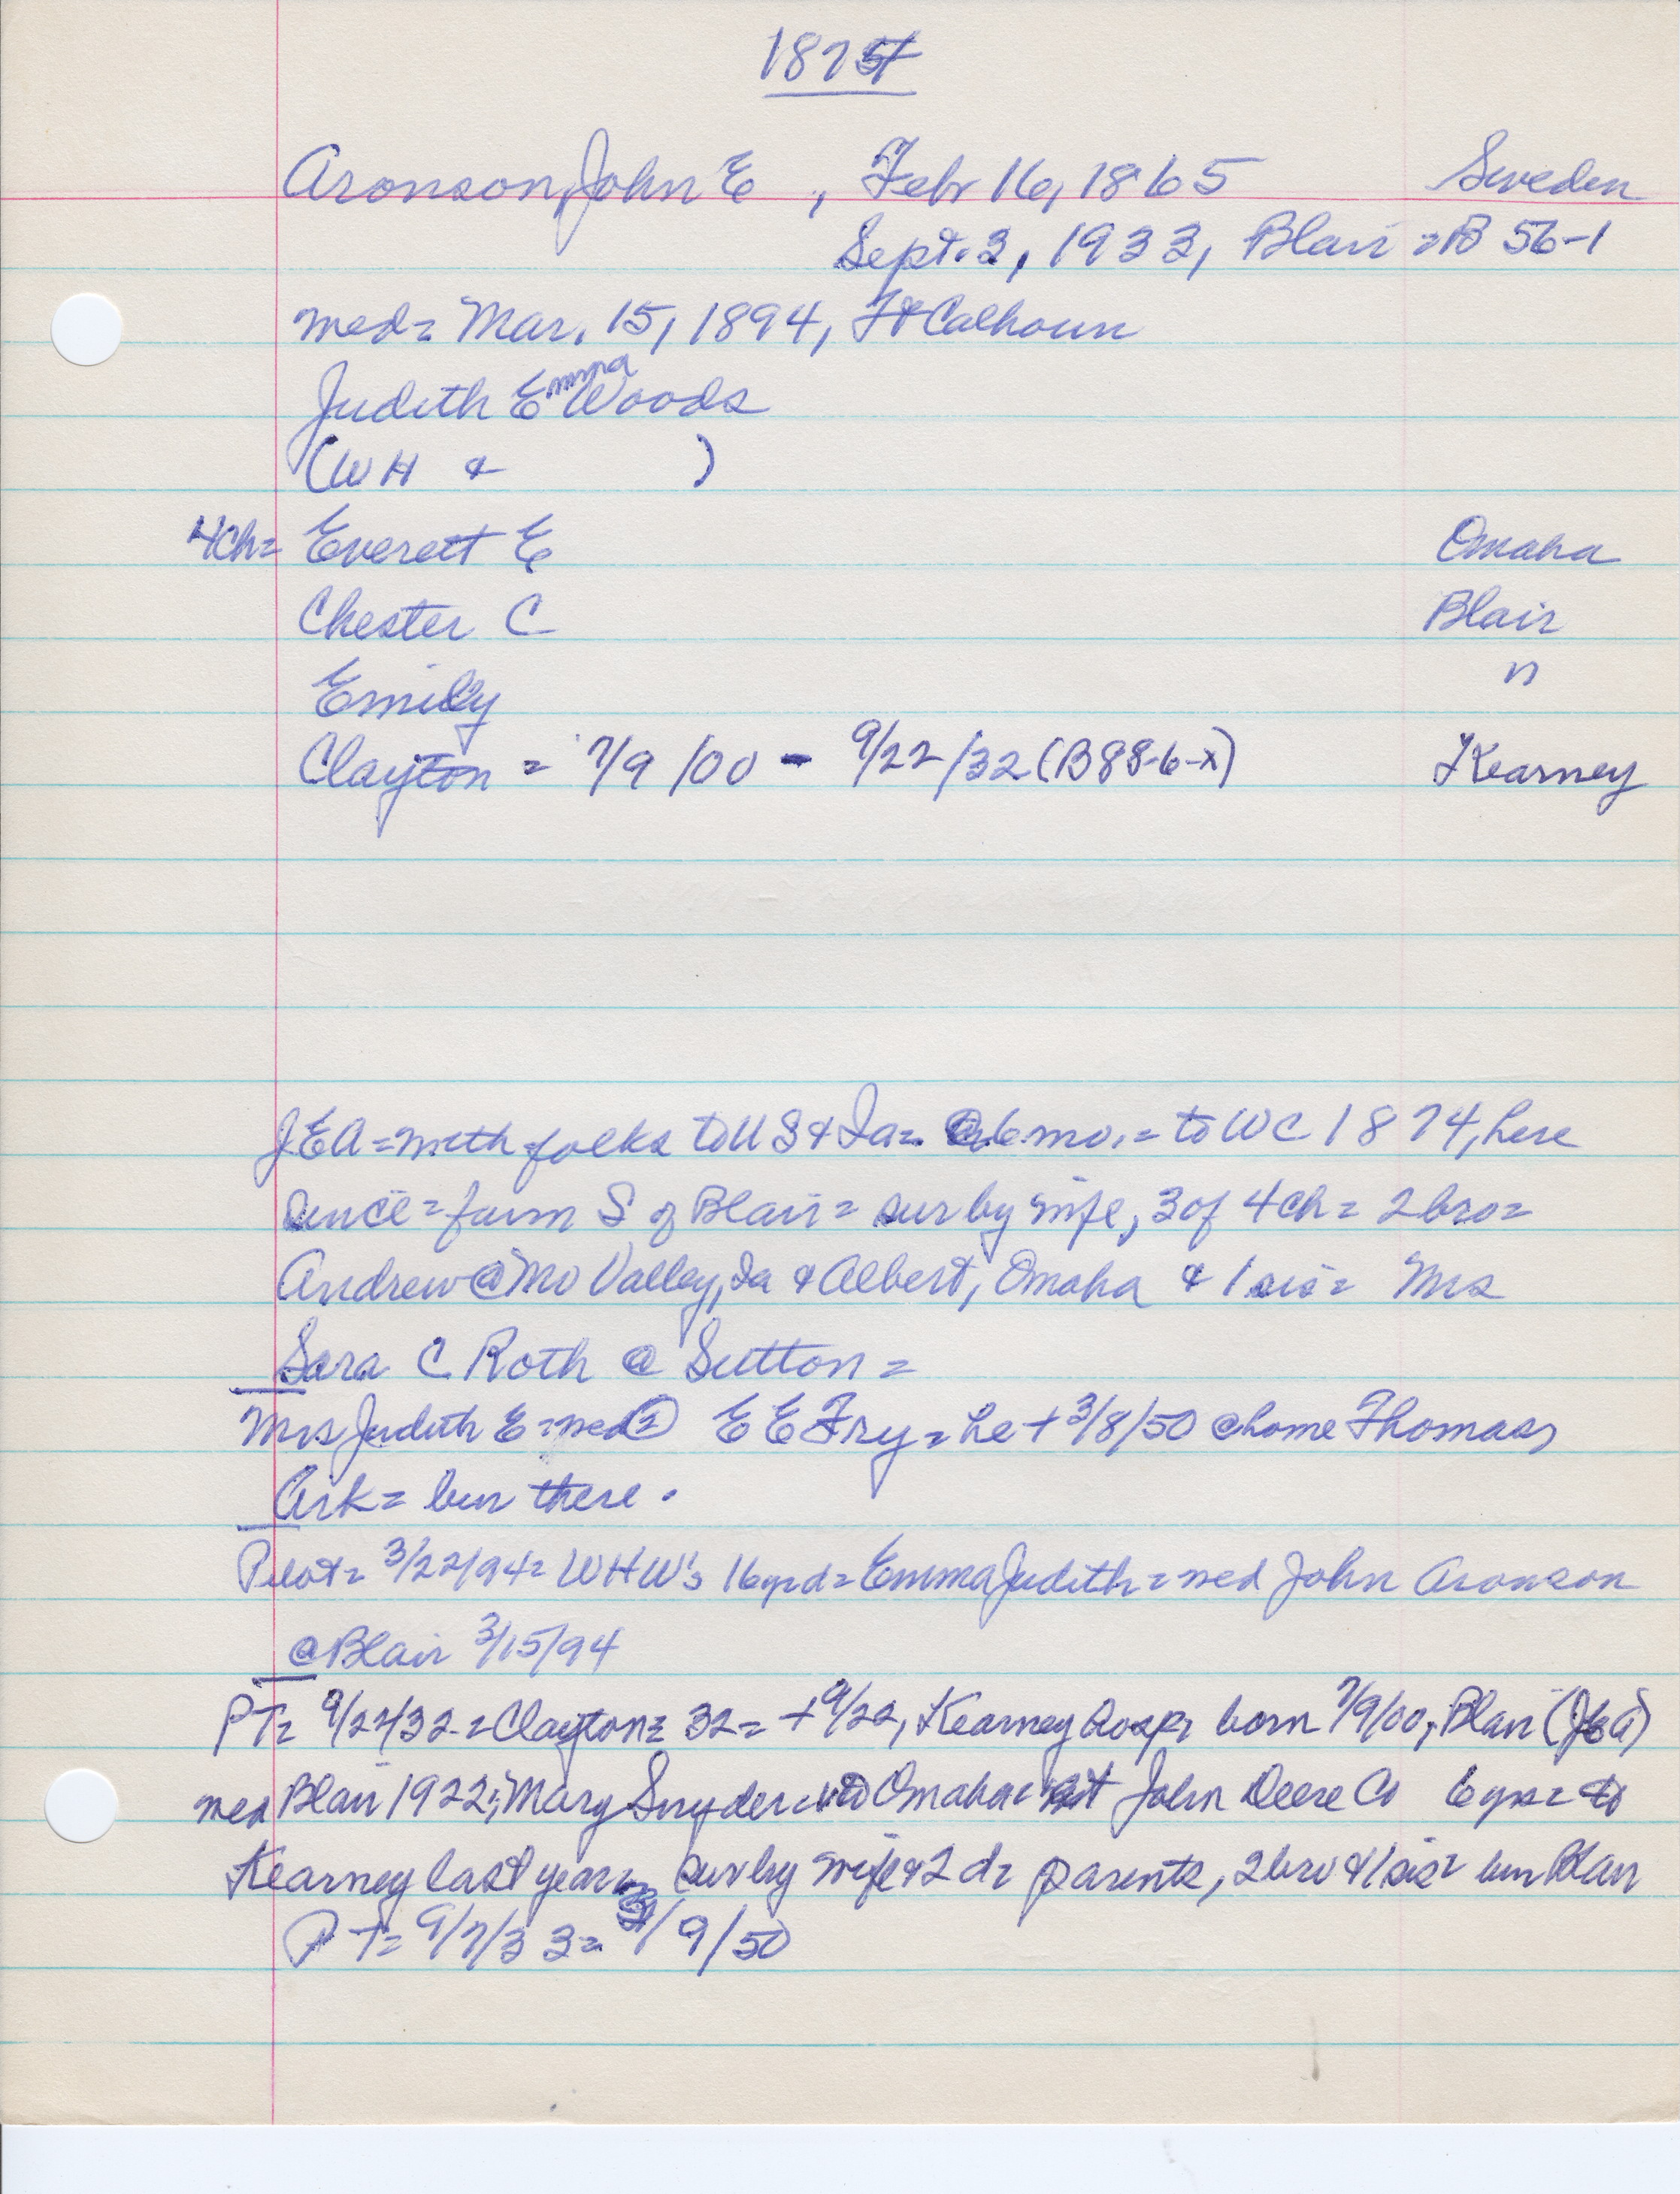 1874
Aronson, John E , Febr 16, 1865 Sweden
Sept. 3, 1933, Blair = B 56-1
med = Mar. 15, 1894, Ft Calhoun
Judith Emma Woods
(WH & )
4ch= Everett E Omaha
Chester C Blair
Emily "
Clayton = 7/9/00 - 9/22/32 (B88-6-x) Kearney
JEA = with folks to US & Ia = @ 6 mo. = to WC 1874, here
since = farm S of Blair = sur by wife, 3 of 4 ch = 2 bro =
Andrew @ Mo Valley, Ia & Albert, Omaha & 1 sis = Mrs
Sara C Roth @ Sutton =
Mrs Judith E = med ② E E Fry = he + 3/8/50 @ home Thomas,
Ark = bur there.
Pilot = 3/22/94 = WHW's 16 yr d = Emma Judith = med John Aronson
@ Blair 3/15/94
PT = 9/22/32 = Clayton = 32 = + 9/22, Kearney born 7/9/00, Blair (JEA)
med Blair 1922, Mary Snyder = to Omaha = John Deere Co 6 yrs = to
Kearney last year = sur by wife & 2 d = parents, 2 bro & 1 sis = bur Blair
PT = 9/7/33 = 3/9/50